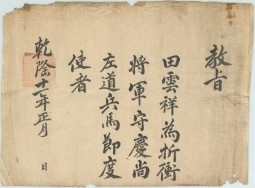 教旨
田雲祥為折衝
將軍守慶尚
左道兵馬節度
使者
乾隆十一年正月 日